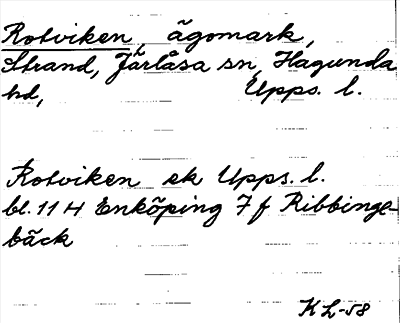 Rotviken, ägomark,
Strand, Järlåsa sn, Hagunda
hd, Upps. l.
Rotviken ek Upps. l.
bl. 11 H Enköping 7 f Ribbinge-
bäck
KL-58